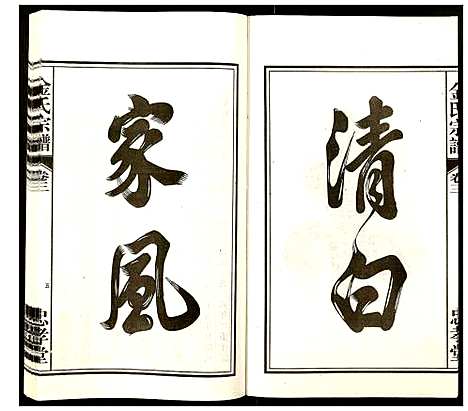 金氏宗譜
卷三
忠孝堂
清白
家風
金氏宗譜
卷三
五
忠孝堂